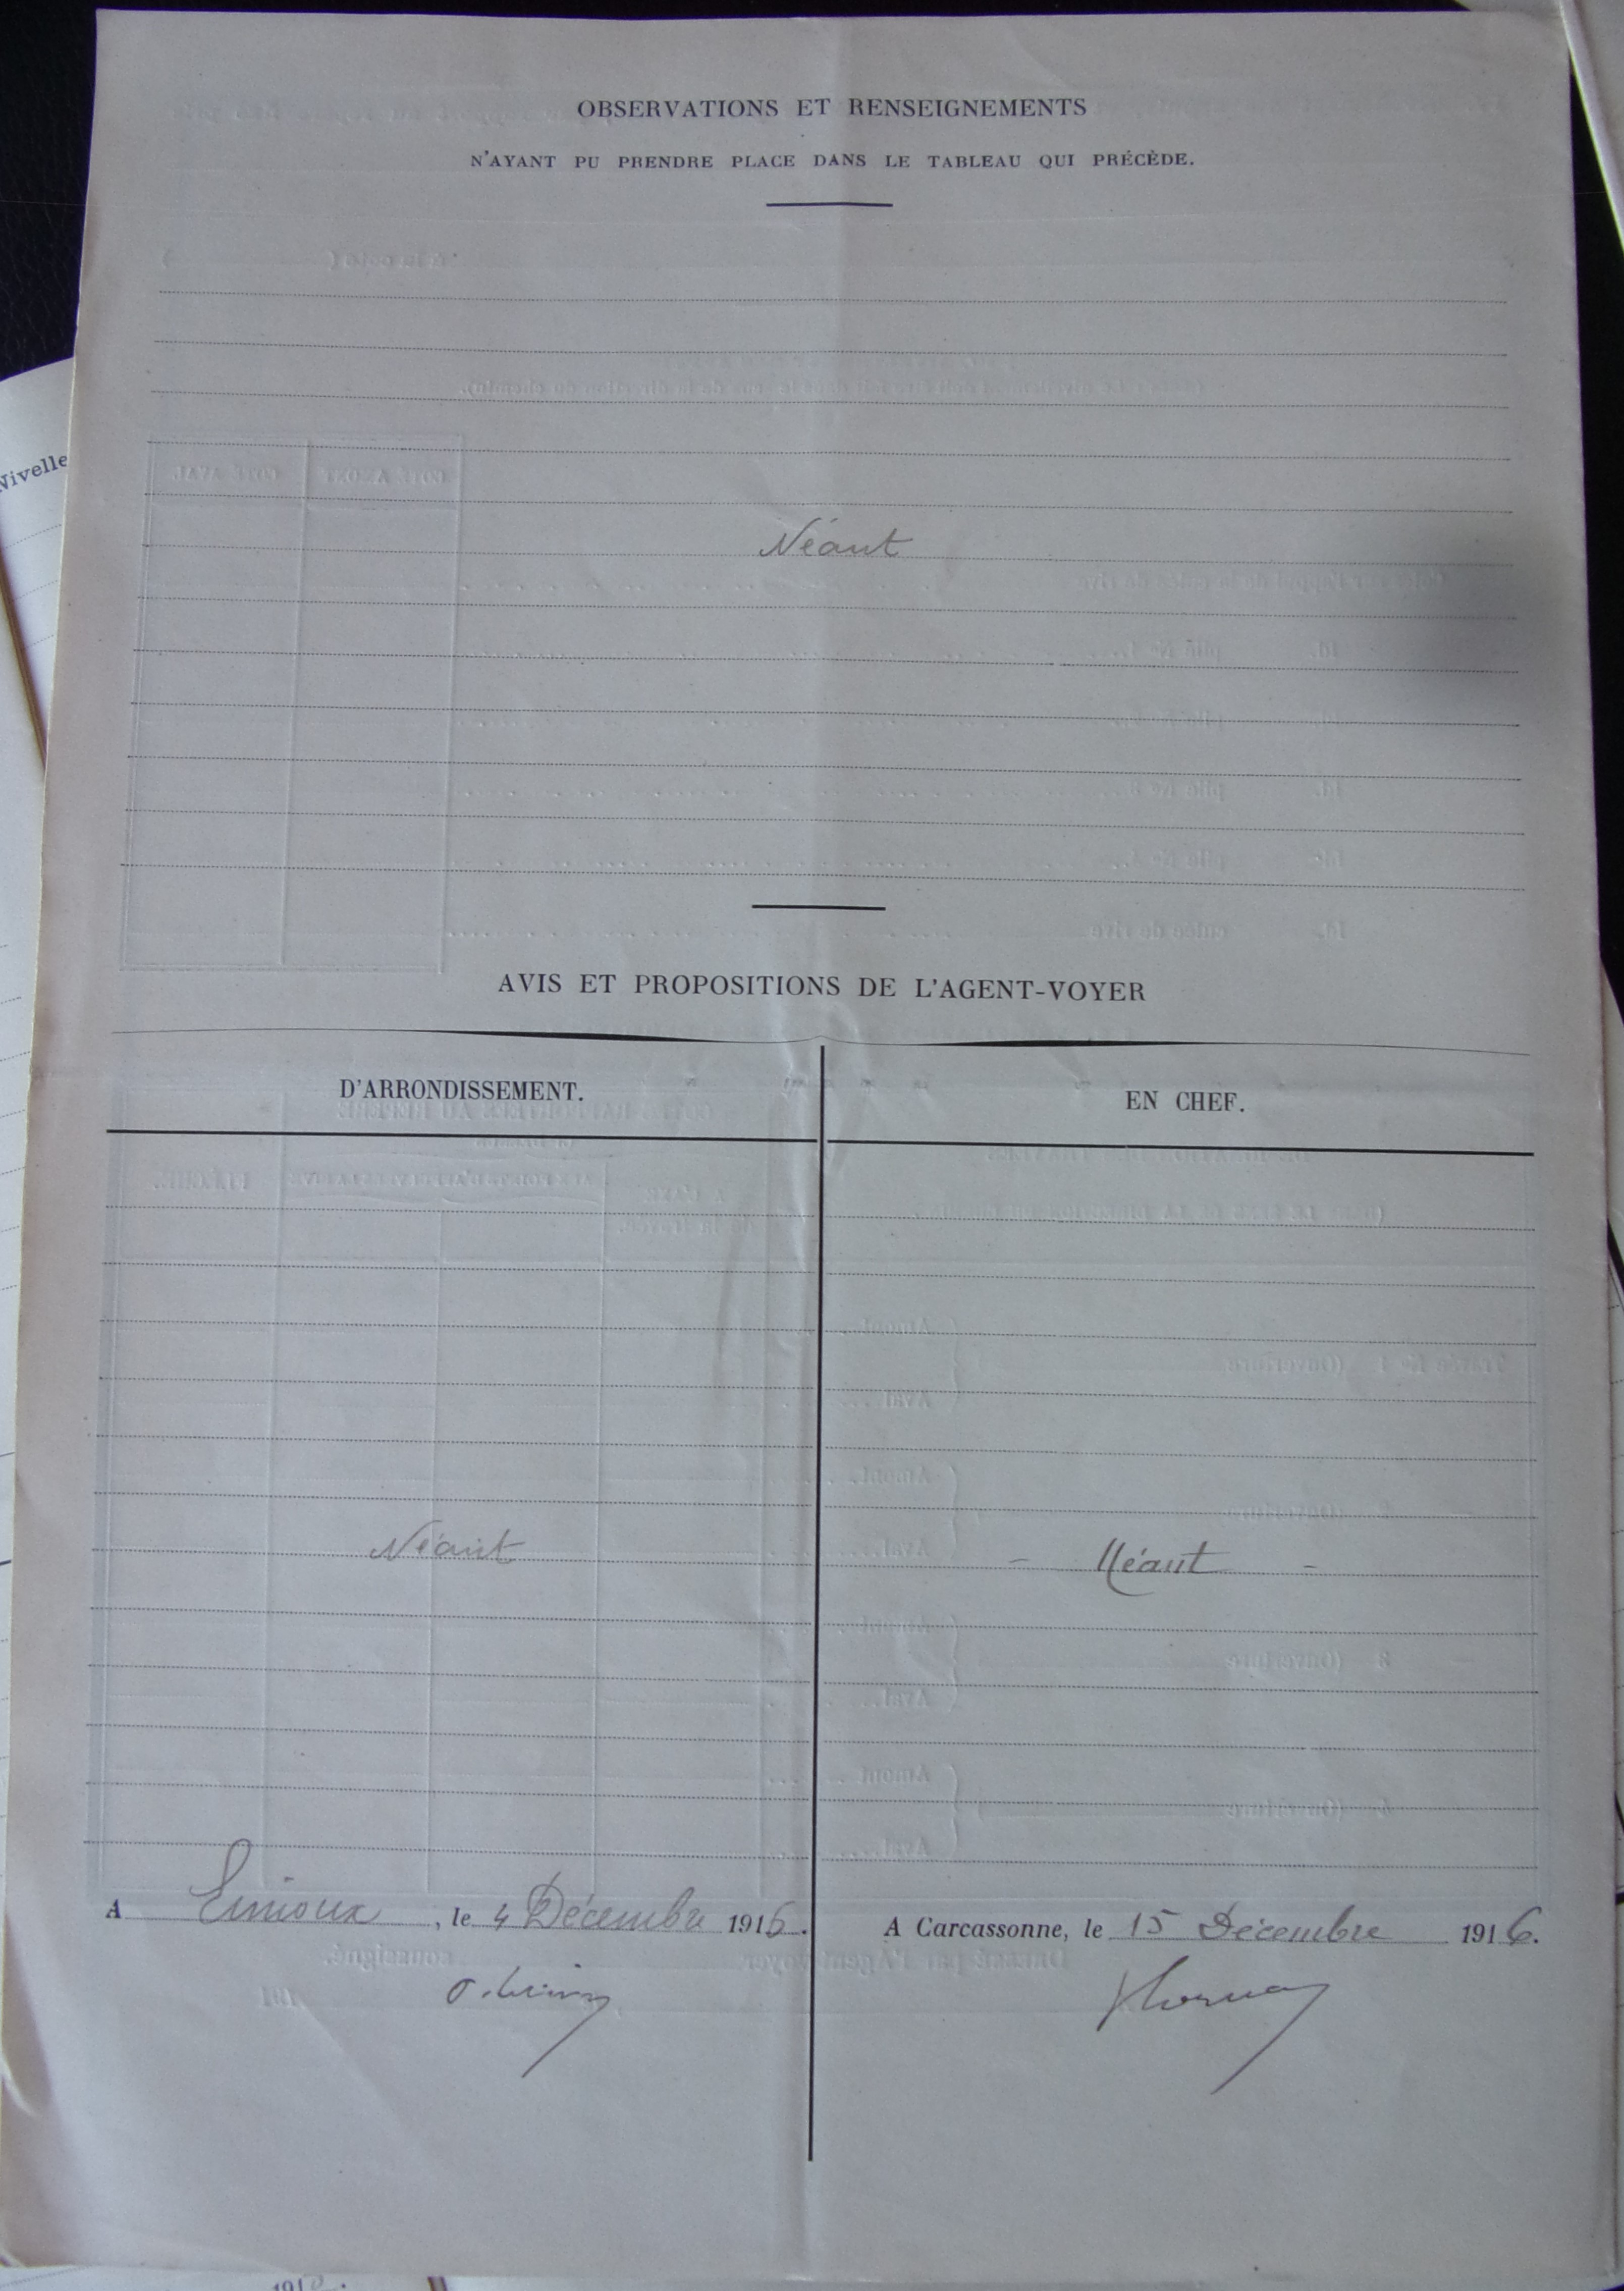 OBSERVATIONS ET RENSEIGNEMENTS
N'AYANT PU PRENDRE PLACE DANS LE TABLEAU QUI PRÉCÈDE.
Nivelle
Néant
AVIS ET PROPOSITIONS DE L'AGENT-VOYER
D'ARRONDISSEMENT.
EN CHEF.
Néant
- Néant -
A Limoux, le 4 Décembre 1916.
A Carcassonne, le 15 Décembre 1916.